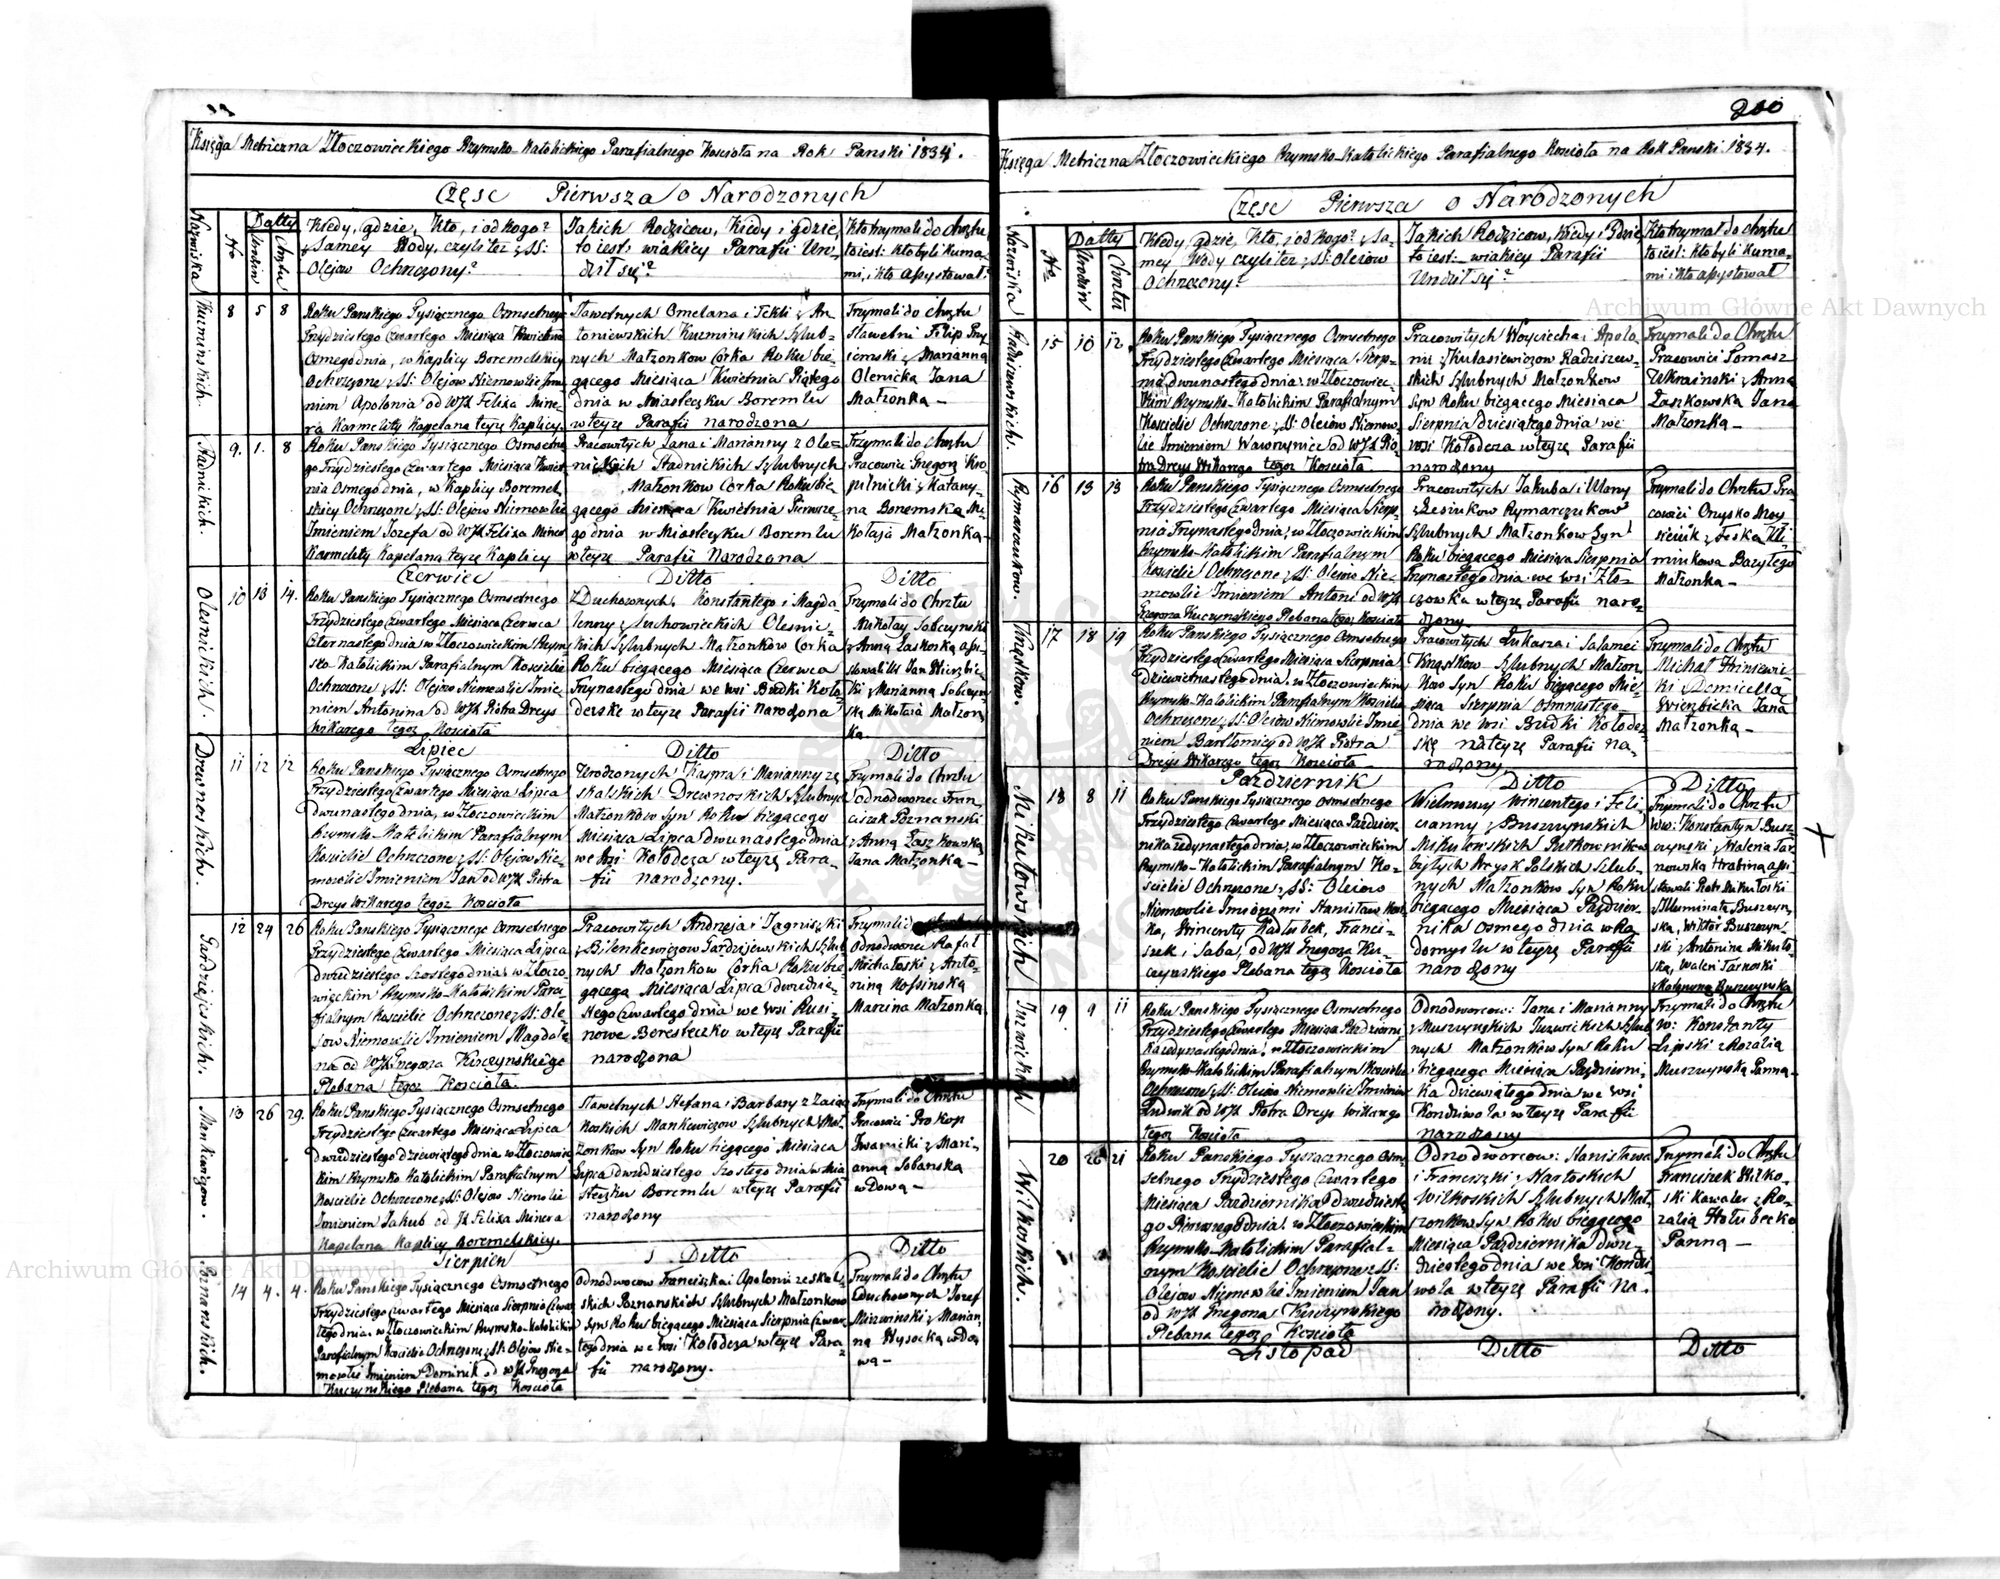 200
Księga Metriczna Złoczowieckiego Rzymsko-Katolickiego Parafialnego Koscioła na Rok Panski 1834.
Częsc Pierwsza o Narodzonych
Nazwiska
No
Datty
Urodzin
Chrztu
Kiedy, gdzie, Kto, i od Kogo?
z Samey Wody, czyli tez z SS:
Olejow Ochrzczony?
Jakich Rodzicow, Kiedy i gdzie,
to iest: w iakiey Parafii Uro-
dził się?
Kto trzymali do Chrztu
to iest: Kto byli Kuma-
mi, i kto assystował?
8 5 8
Roku Panskiego Tysiącznego Osmsetnego
Trzydziestego Czwartego Miesiąca Kwietnia
Osmego dnia, w Kaplicy Boremelskiey
Ochrzczone z SS: Olejow Niemowlie Imie
niem Apolonia od WJX Felixa Mine-
ra Karmelity Kapelana teyze Kaplicy
Sławetnych Omelana i Tekli z An
toniewskich Kuzminskich Szlub-
nych Małzonkow Corka Roku bie
gącego Miesiąca Kwietnia Piątego
dnia w Miasteczku Boremlu
w teyze Parafii narodzona
Trzymali do chrztu
Sławetni Filip
z Marianną
Olenicką Jana
Małzonką -
Stadnickich.
9. 1. 8
Roku Panskiego Tysiącznego Osmsetne
go Trzydziestego Czwartego Miesiąca Kwiet
nia Osmego dnia, w Kaplicy Boremel
skiey Ochrzczone z SS: Olejow Niemowlie
Imieniem Jozefa od WJX Felixa Minera
Karmelity Kapelana teyze Kaplicy
Pracowitych Jana i Marianny z Ole=
Stadnickich Szlubnych
Małzonkow Corka Roku bie
gącego Miesiąca Kwietnia Pierwsze-
go dnia w Miasteczku Boremlu
w teyze Parafii Narodzona
Trzymali do Chrztu
Pracowici Gregorz Kro
pilnicki z Katarzy-
ną Boremską Mi
kołaja Małzonką-
Czerwiec Ditto Ditto
Olesnickich.
10 13 14.
Roku Panskiego Tysiącznego Osmsetnego
Trzydziestego Czwartego Miesiąca Czerwca
Czternastego dnia w Złoczowieckim Rzym
sko Katolickim Parafialnym Kosciele
Ochrzczone z SS: Olejow Niemowlie Imie
niem Antonina od WJX Piotra Dreys
Wikarego tegoz Koscioła
Z Duchownych. Konstantego i Magda-
leny z Suchowieckich Olesnic-
kich Szlubnych Małzonkow Corka
Roku biegącego Miesiąca Czerwca
Trzynastego dnia we Wsi Budki Koło
derskie w teyze Parafii Narodzona
Trzymali do Chrztu
Mikołay Sobczynski
z Anną Laskoską assy-
stowali W Jan Wierzbic
ki z Marianną Sobczyn
ską Mikołaja Małzon
ką
Lipiec Ditto Ditto
Drewnoskich.
11 12 12
Roku Panskiego Tysiącznego Osmsetnego
Trzydziestego Czwartego Miesiąca Lipca
dwunastego dnia, w Złoczowieckim
Rzymsko-Katolickim Parafialnym
Kosciele Ochrzczone z SS: Olejow Nie-
mowlie Imieniem Jan od WJX Piotra
Dreys Wikarego tegoz Koscioła
Urodzonych Kaspra i Marianny ze
Skalskich Drewnoskich Szlubnych
Małzonkow Syn Roku biegącego
Miesiąca Lipca dwunastego dnia
we Wsi Kołodeza w teyze Para-
fii narodzony.
Trzymali do Chrztu
odnodworiec Fran
ciszek Poznanski
z Anną Laszkowską
Jana Małzonką-
Gardziejeskich.
12 24 26
Roku Panskiego Tysiącznego Osmsetnego
Trzydziestego Czwartego Miesiąca Lipca
dwudziestego szostego dnia w Złoczo
wieckim Rzymsko-Katolickim Para-
fialnym Kosciele Ochrzczone z SS: Ole-
jow Niemowlie Imieniem Magdale
na od WJX Gregorza Kuczynskiego
Plebana tegoz Koscioła.
Pracowitych Andrzeja i Jagniszki
z Bilenkiewiczow Gardziejewskich Szlub
nych Małzonkow Corka Roku bie
gącego Miesiąca Lipca dwudzie-
stego Czwartego dnia we Wsi Rusi-
nowe Beresteczko w teyze Parafii
narodzona
Trzymali do Chrztu
Odnodworiec Rafał
Michałoski z Anto-
niną Kossinską
Marcina Małzonką
Mankiewiczow.
13 26 29.
Roku Panskiego Tysiącznego Osmsetnego
Trzydziestego Czwartego Miesiąca Lipca
Dwudziestego dziewiątego dnia w Złoczowiec
kim Rzymsko Katolickim Parafialnym
Kosciele Ochrzczone z SS: Olejow Niemowlie
Imieniem Jakub od JX Felixa Minera
Kapelana Kaplicy Boremelskiey.
Sławetnych Stefana i Barbary z Zaiąc
koskich Mankiewiczow Szlubnych Mał
zonkow Syn Roku biegącego Miesiąca
Lipca dwudziestego Szostego dnia w Mia
steczku Boremlu w teyze Parafii
narodzony
Trzymali do Chrztu
Pracowici Prokop
Iwanicki z Mari-
anną Sobanską
wdową -
Sierpien Ditto Ditto
Poznanskich.
14 4. 4.
Roku Panskiego Tysiącznego Osmsetnego
Trzydziestego Czwartego Miesiąca Sierpnia Czwar
tego dnia. w Złoczowieckim Rzymsko-Katolickim
Parafialnym Kosciele Ochrzczone z SS: Olejow Nie-
mowlie Imieniem Dominik od WJX Gregorza
Kuczynskiego Plebana tegoz Koscioła
Odnodworcow Franciszka i Apolonii ze Skal
skich Poznanskich Szlubnych Małzonkow
Syn Roku biegącego Miesiąca Sierpnia Czwar
tego dnia we Wsi Kołodeza w teyze Para-
fii narodzony.
Trzymali do Chrztu
Z Duchownych Jozef
Miszwinski z Marian
ną Wysocką wdo
wą -
Księga Metriczna Złoczowieckiego Rzymsko-Katolickiego Parafialnego Koscioła na Rok Panski 1834.
Częsc Pierwsza o Narodzonych
Nazwiska
No
Datty
Urodzin
Chrztu
Kiedy, gdzie, Kto, i od Kogo? z Sa-
mey Wody czyli tez z SS: Olejow
Ochrzczony?
Jakich Rodzicow, Kiedy i Gdzie
to iest: w iakiey Parafii
Urodził się?
Kto trzymał do chrztu
to iest: Kto byli Kuma-
mi i kto assystował
Radziszewskich.
15 10 12.
Roku Panskiego Tysiącznego Osmsetnego
Trzydziestego Czwartego Miesiąca Sierp-
nia dwunastego dnia w Złoczowiec-
kim Rzymsko-Katolickim Parafialnym
Kosciele Ochrzczone z SS: Olejow Niemow-
lie Imieniem Wawrzyniec od WJX Pio
tra Dreys Wikarego tegoz Koscioła.
Pracowitych Woyciecha i Apolo
nii z Kułasiewiczow Radziszew-
skich Szlubnych Małzonkow
Syn Roku biegącego Miesiąca
Sierpnia dziesiątego dnia we
Wsi Kołodeza w teyze Parafii
narodzony
Trzymali do Chrztu
Pracowici Tomasz
Ukrainski z Anną
Laszkowską Jana
Małzonką -
Rymarczukow.
16 13 13
Roku Panskiego Tysiącznego Osmsetnego
Trzydziestego Czwartego Miesiąca Sierp-
nia Trzynastego dnia, w Złoczowieckim
Rzymsko-Katolickim Parafialnym
Kosciele Ochrzczone z SS: Olejow Nie-
mowlie Imieniem Antoni od WJX
Gregorza Kuczynskiego Plebana tegoz Koscioła
Pracowitych Jakuba i Mary
z Lesiukow Rymarczukow
Szlubnych Małzonkow Syn
Roku biegącego Miesiąca Sierpnia
Trzynastego dnia we Wsi Zło-
czowka w teyze Parafii naro-
dzony
Trzymali do Chrztu Pra
cowici Onysko Moy
sieiuk z Feską Kli
minkową Bazylego
Małzonką -
17 18 19
Roku Panskiego Tysiącznego Osmsetnego
Trzydziestego Czwartego Miesiąca Sierpnia
Dziewietnastego dnia w Złoczowieckim
Rzymsko-Katolickim Parafialnym Kosciele
Ochrzczone z SS: Olejow Niemowlie Imie
niem Bartłomiey od WJX Piotra
Dreys Wikarego tegoz Koscioła -
Pracowitych Łukasza i Salomei
Szlubnych Małzon
kow Syn Roku biegącego Mie-
siąca Sierpnia Osmnastego
dnia we Wsi Budki Kołodez
skie w teyze Parafii na-
rodzony
Trzymali do Chrztu
Michał Hriniewic-
ki z Domicellą
Zwierzbicką Jana
Małzonką -
Pazdziernik Ditto Ditto
Mikułowskich
18 8 11
Roku Panskiego Tysiącznego Osmsetnego
Trzydziestego Czwartego Miesiąca Pazdzier-
nika iedynastego dnia, w Złoczowieckim
Rzymsko-Katolickim Parafialnym Ko-
sciele Ochrzczone z SS: Olejow
Niemowlie Imionami Stanisław Kost
ka, Wincenty Kadłubek, Franci-
szek i Saba, od WJX Gregorza Ku-
czynskiego Plebana tegoz Koscioła
Wielmoznych Wincentego i Feli
cianny z Buszczynskich
Mikułowskich Pułkownikow
byłych Woysk Polskich Szlub-
nych Małzonkow Syn Roku
biegącego Miesiąca Pazdzier-
nika osmego dnia w Ka
domyslu w teyze Parafii
narodzony
Trzymali do Chrztu
WW: Konstantyn Busz-
czynski z Walerią Tar
nowską Hrabiną assy
stowali Piotr Mikułoski
z Illuminatą Buszczyn
ską, Wiktor Buszczyn
ski z Antoniną Mikuło
ską, Waleri Tarnoski
z Malwiną Buszczynską
Juzwickich
19 9 11
Roku Panskiego Tysiącznego Osmsetnego
Trzydziestego Czwartego Miesiąca Pazdzierni
ka iedynastego dnia w Złoczowieckim
Rzymsko-Katolickim Parafialnym Kosciele
Ochrzczone z SS: Olejow Niemowlie Imieniem
Ludwik od WJX Piotra Dreys Wikarego
tegoz Koscioła
Odnodworcow: Jana i Marianny
z Muszynskich Juzwickich Szlub
nych Małzonkow Syn Roku
biegącego Miesiąca Pazdzierni-
ka dziewiątego dnia we Wsi
Konduwola w teyze Parafii
narodzony
Trzymali do Chrztu
W: Konstanty
Lipski z Rozalią
Muszczynską Panną-
Wilkoskich.
20 20 21
Roku Panskiego Tysiącznego Osm-
setnego Trzydziestego Czwartego
Miesiąca Pazdziernika Dwudzieste
go Pierwszego dnia w Złoczowieckim
Rzymsko-Katolickim Parafial-
nym Kosciele Ochrzczone z SS:
Olejow Niemowlie Imieniem Jan
od WJX Gregorza Kuczynskiego
Plebana tegoz Koscioła
Odnodworcow: Stanisława
i Franciszki z Nartoskich
Wilkoskich Szlubnych Mał-
zonkow Syn Roku biegącego
Miesiąca Pazdziernika Dwu-
dziestego dnia we Wsi Kondu
wola w teyze Parafii Na-
rodzony.
Trzymali do Chrztu
Franciszek Wilko-
ski Kawaler z Ro-
zalią Hołubecką
Panną -
Listopad Ditto Ditto
Archiwum Główne Akt Dawnych
Archiwum Główne Akt Dawnych
Archiwum Główne Akt Dawnych